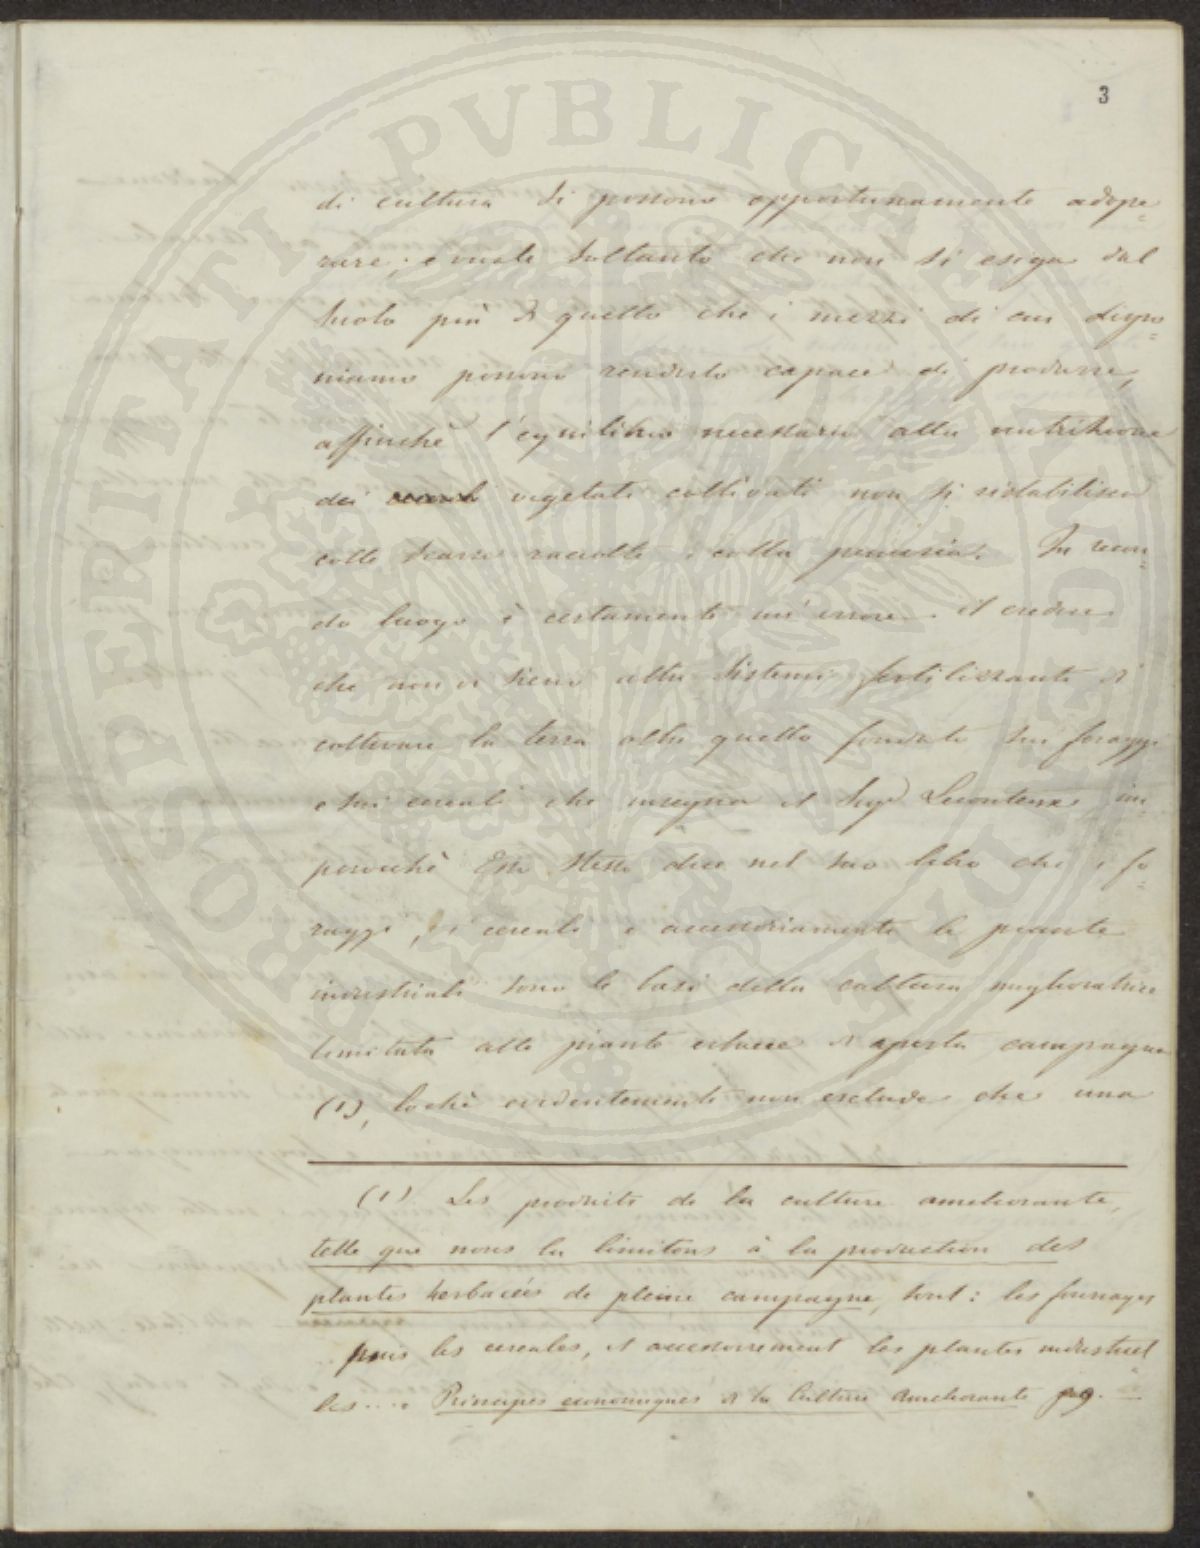 3
di cultura si possono opportunamente adope=
rare; e vuole soltanto che non si esiga dal
suolo più di quello che i mezzi di cui dispo=
niamo possono renderlo capace di produrre,
affinchè l'equilibrio necessario alla nutrizione
dei vegetali coltivati non si ristabilisca
colle scarse raccolte e colla penuria. In secon=
do luogo è certamente un'errore il credere
che non vi sieno altri sistemi fertilizzanti di
coltivare la terra oltre quello fondato sui foraggi
e sui cereali che insegna il Sigr Lecouteux im=
perocchè Esso stesso dice nel suo libro che i fo=
raggi, i cereali e accessoriamente le piante
industriali sono le basi della cultura miglioratrice
limitata alle piante erbacee di aperta campagna
(1), lochè evidentemente non esclude che una
(1) Les produits de la culture améliorante,
telle que nous la limitons à la production des
plantes herbacées de pleine campagne, sont: les fourrages
puis les céréales, et accessoirement les plantes industriel=
les.... Principes économiques de la Culture améliorante pag.
PROSPERITATI PVBLICAE AVGENDAE